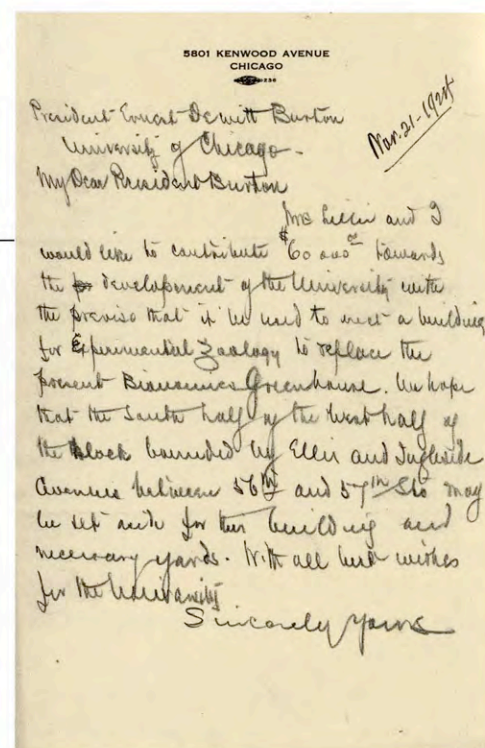 5801 KENWOOD AVENUE
CHICAGO
Nov. 21-1924
President Ernest Dewitt Burton
University of Chicago-
My Dear President Burton
Mrs Lillie and I
would like to contribute $60 000 towards
the development of the University with
the proviso that it be used to erect a building
for Experimental Zoology to replace the
present Bionomics Greenhouse. We hope
that the South half of the West half of
the block bounded by Ellis and Ingleside
Avenues between 56th and 57th Sts may
be set aside for this building and
necessary yards. With all best wishes
for the University
Sincerely Yours